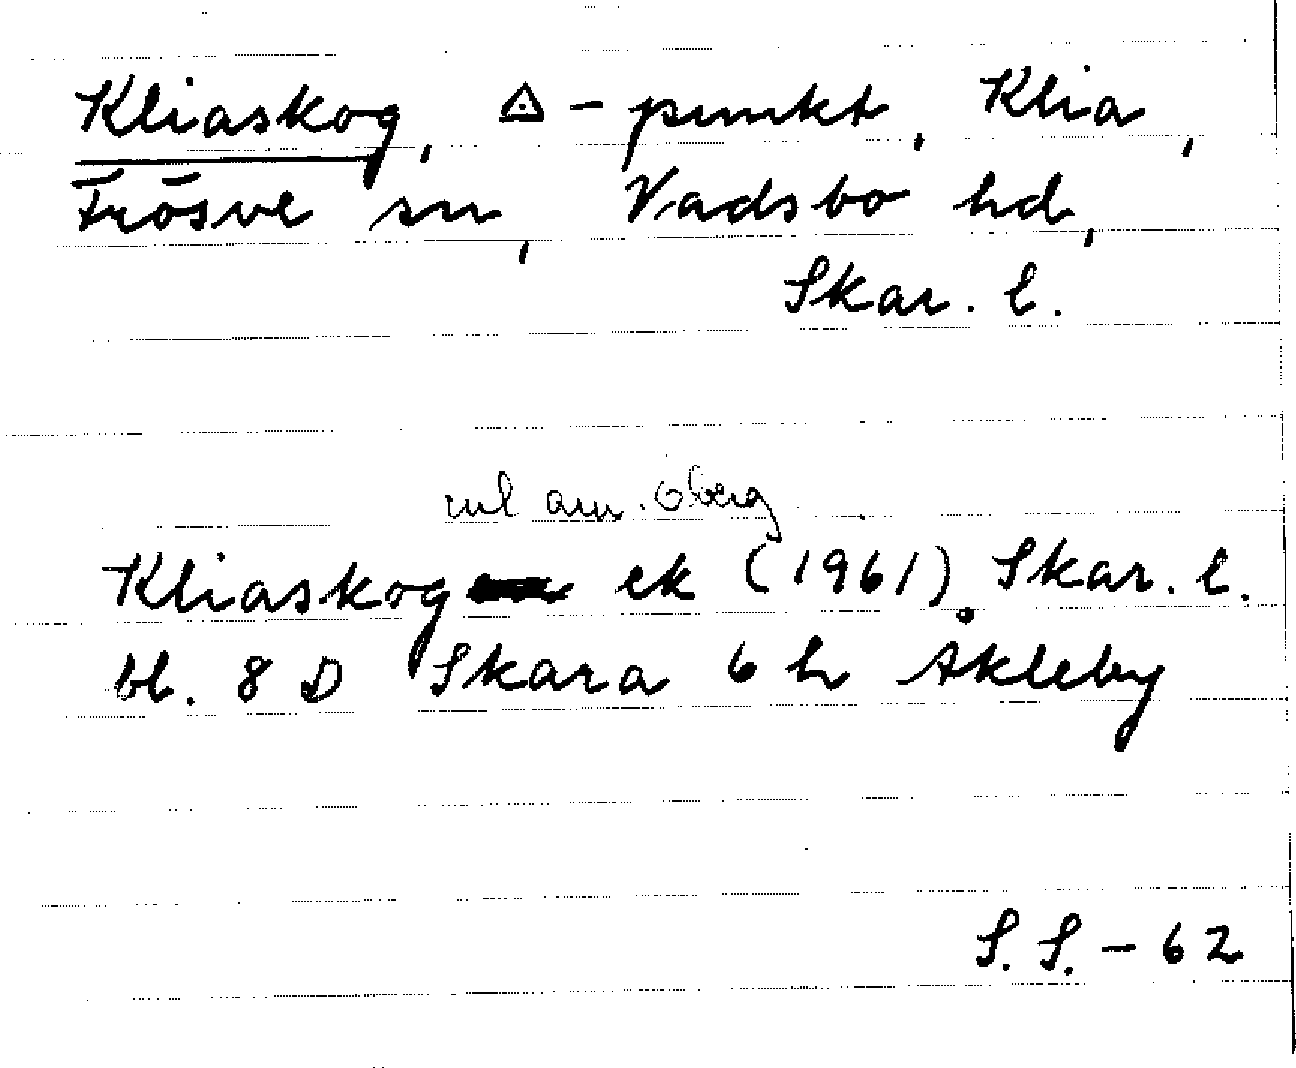 Kliaskog, ◬ - punkt, Klia,
Frösve sn, Vadsbo hd,
Skar. l.
enl ann. Öberg
Kliaskog ek (1961). Skar. l.
bl. 8 D Skara 6 h Åkleby
S. S. - 62